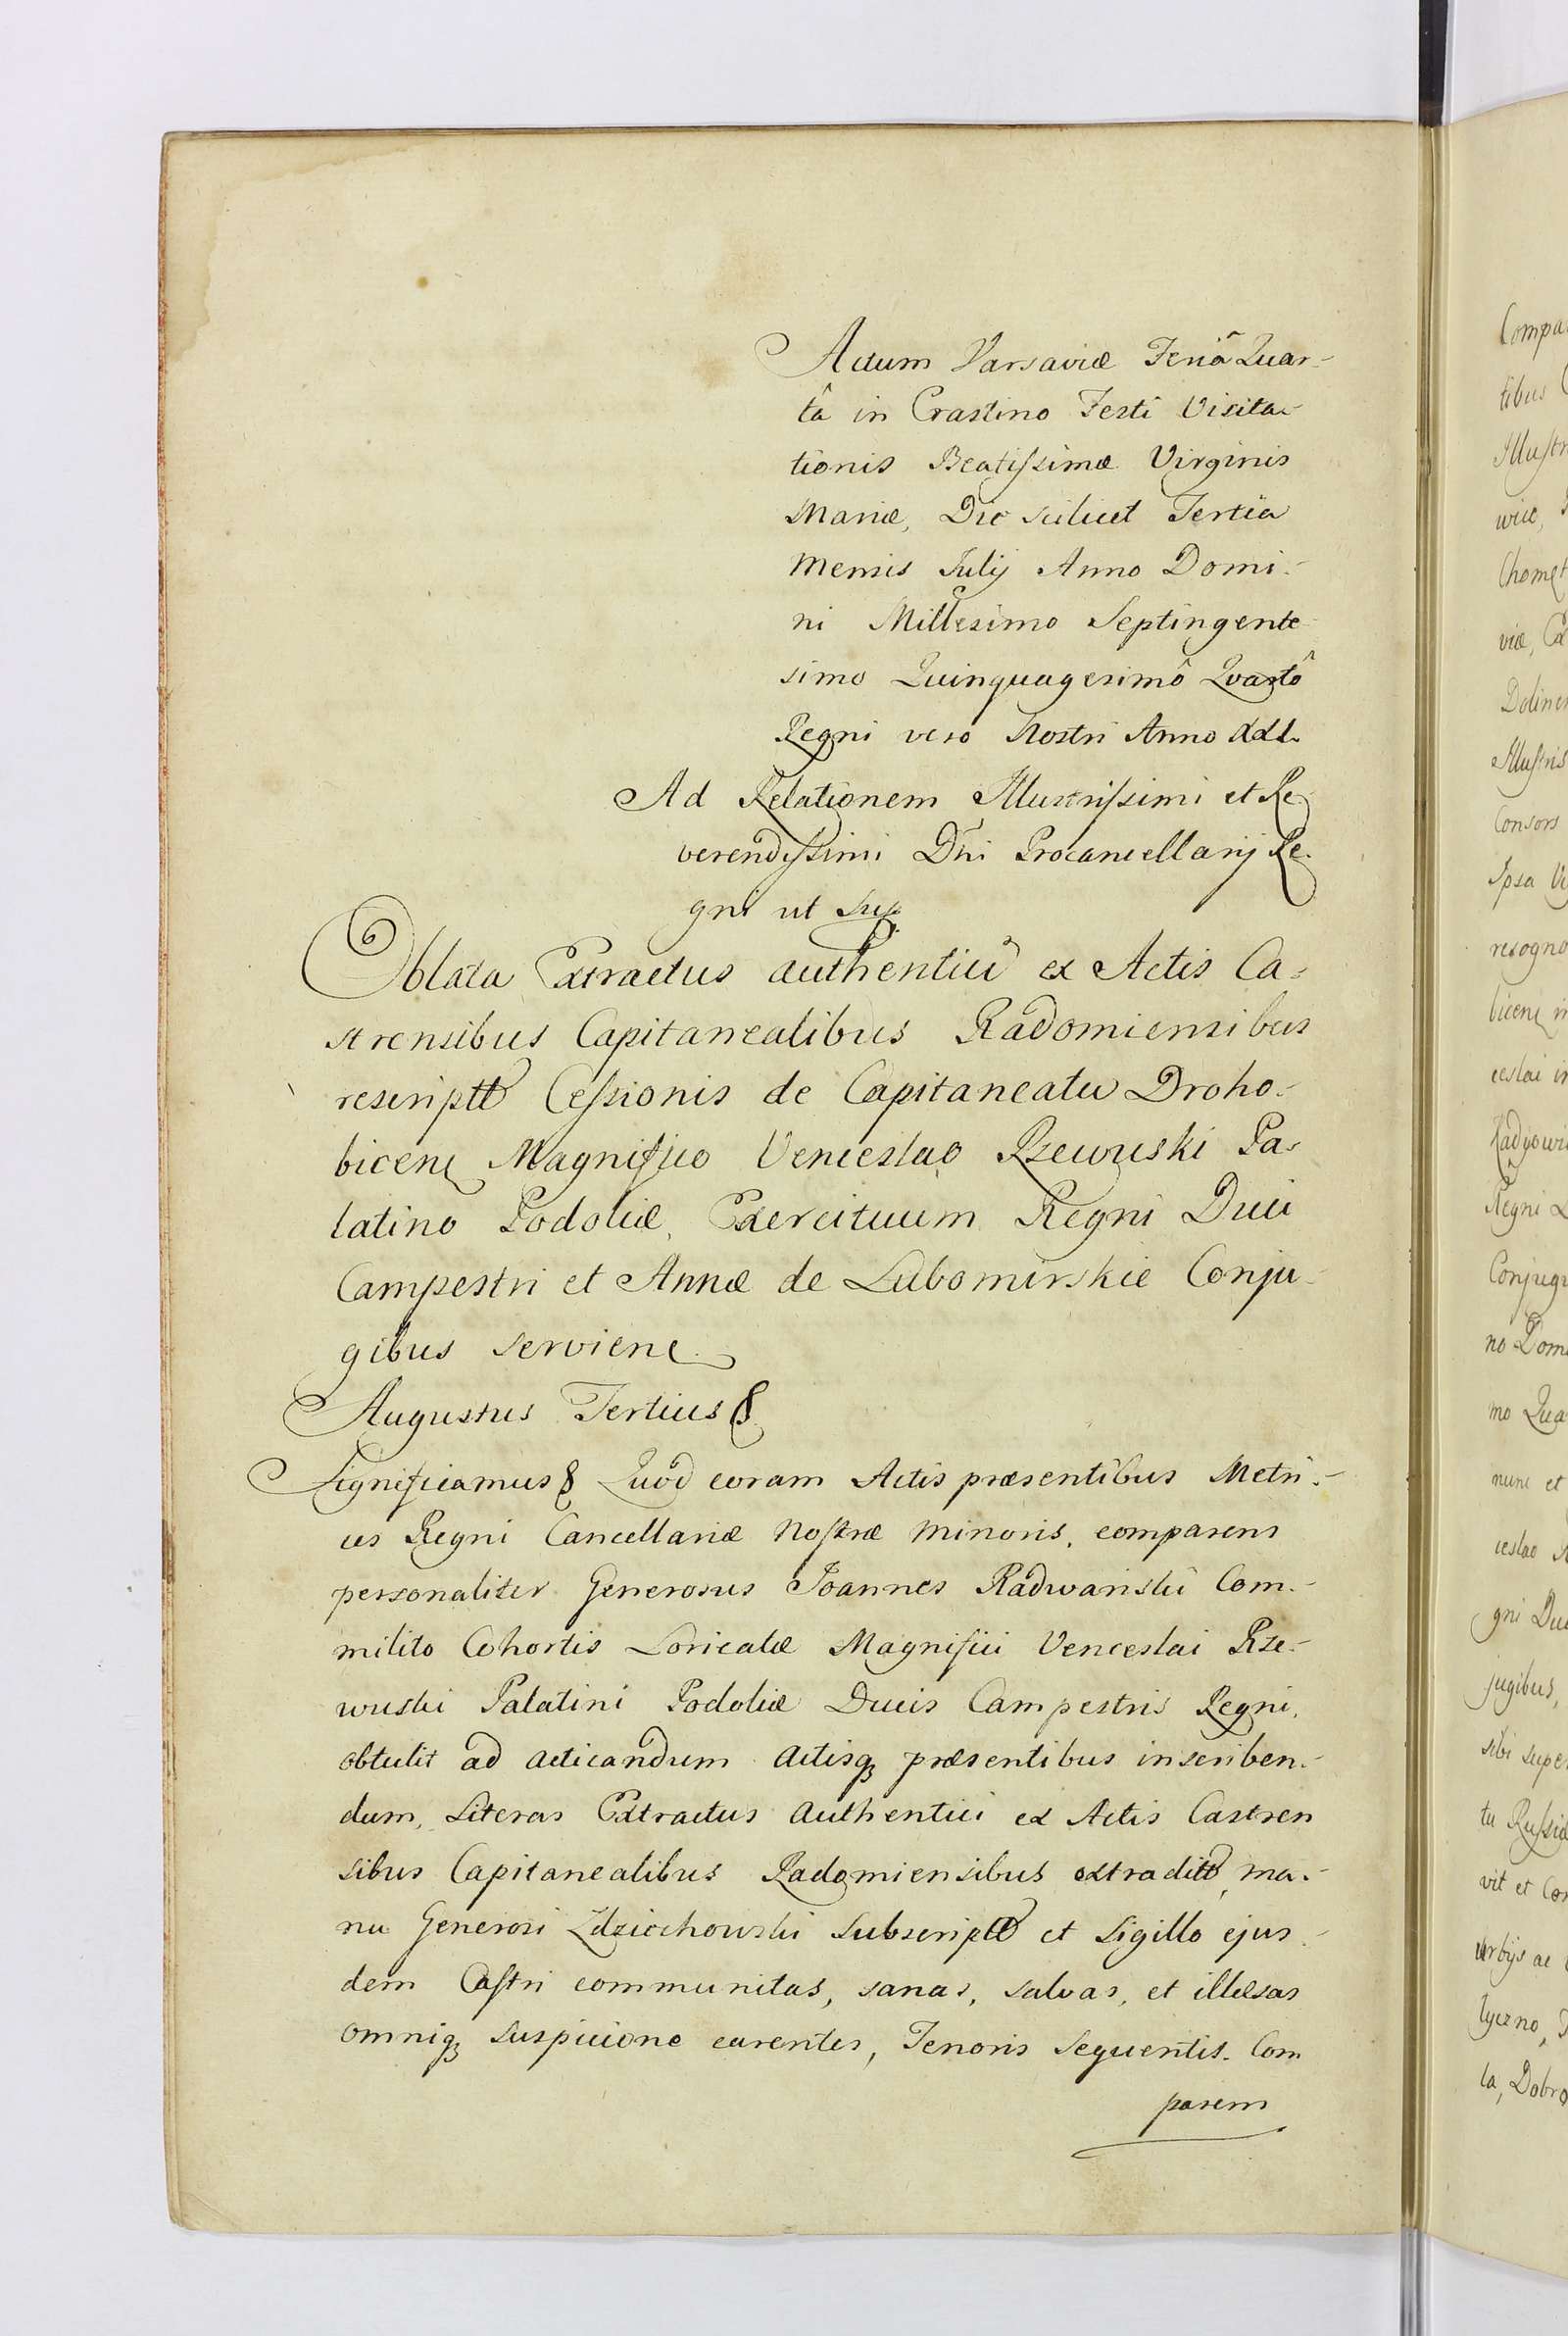 Actum Varsaviæ Feriâ Quar-
tâ in Crastino Festi Visita-
tionis Beatissimæ Virginis
Mariæ, Die scilicet Tertia
Mensis Julij Anno Domi-
ni Millesimo Septingente
simo Quinquagesimô Quartô
Regni vero Nostri Anno XXI.
Ad Relationem Illustrissimi et Re-
verendissimi Dni Procancellarij Re-
gni ut sup
Oblata Extractus authentici ex Actis Ca-
strensibus Capitanealibus Radomiensibus
rescriptt Cessionis de Capitaneatu Droho-
bicen Magnifico Venceslao Rzewuski Pa-
latino Podoliæ, Exercituum Regni Duci
Campestri et Annæ de Lubomirskie Conju-
gibus servien.
Augustus Tertius &
Significamus & Quod coram Actis præsentibus Metri-
ces Regni Cancellariæ Nostræ Minoris, comparens
personaliter Generosus Joannes Radwański Com-
milito Cohortis Loricatæ Magnifici Venceslai Rze-
wuski Palatini Podoliæ Ducis Campestris Regni,
obtulit ad acticandum actisq præsentibus inscriben-
dum, Literas Extractus authentici ex Actis Castren
sibus Capitanealibus Radomiensibus extraditt, ma-
nu Generosi Zdziechowski subscriptt et Sigillo ejus-
dem Castri communitas, sanas, salvas, et illæsas
omniq suspicione carentes, Tenoris Sequentis. Com
parens
Compa
tibus
Illustr
wice,
Chomęt
viæ, Ex
Dolinen
Illustris
Consors
Ipsa
recogno
bicen in
ceslai in
Radziowi
Regni
Conjugi
no Domi
mo Qua
nunc et
ceslao
gni Duc
jugibus,
sibi super
tu Russiæ
vit et Con
urbijs ac
tyczno,
la, Dobro